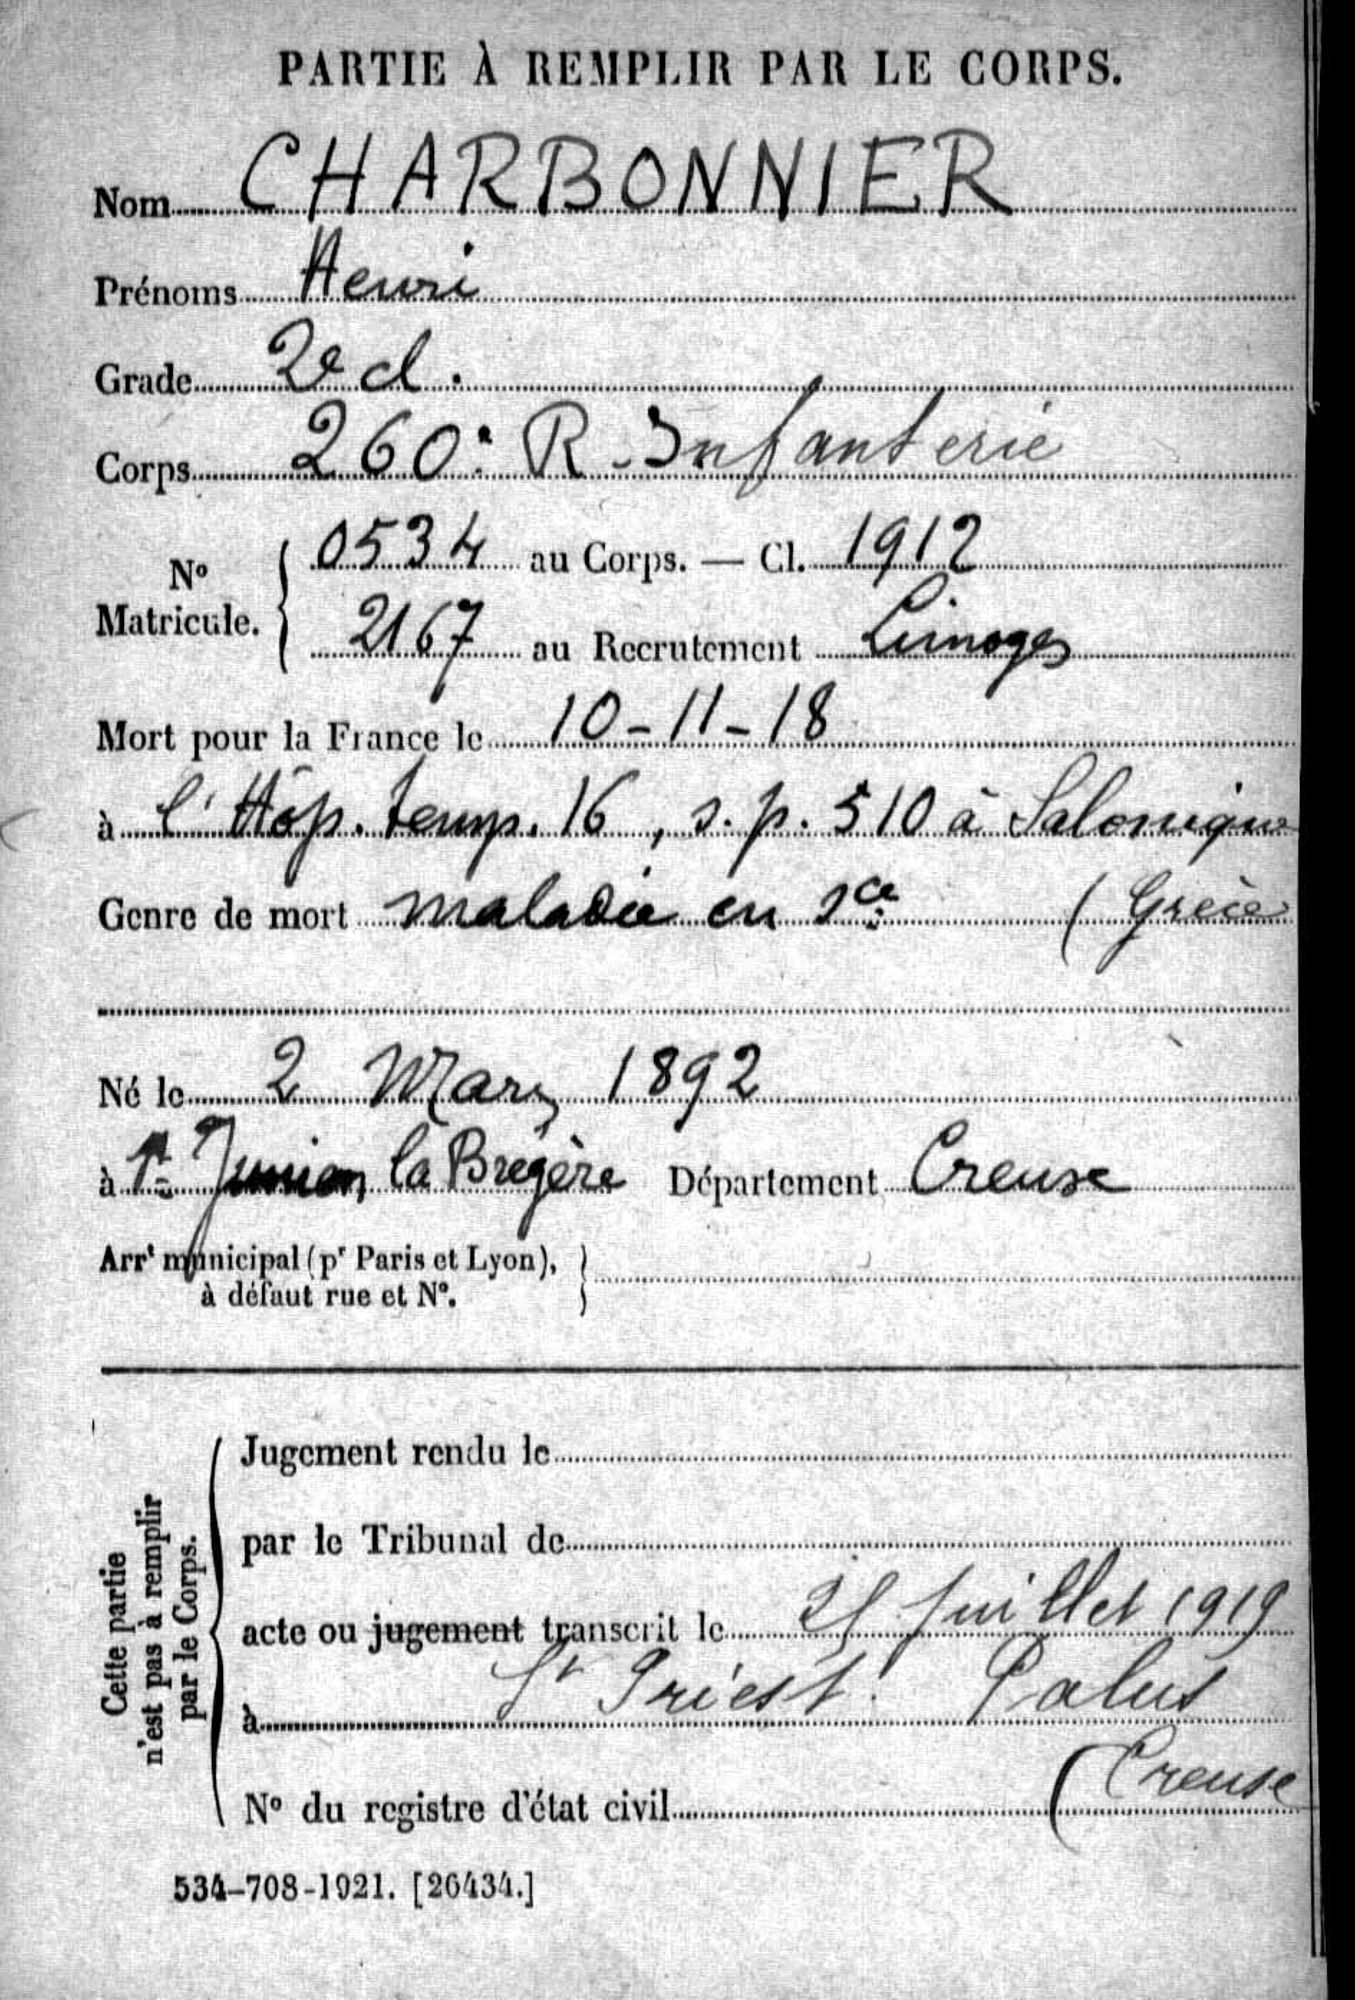 PARTIE À REMPLIR PAR LE CORPS.
Nom CHARBONNIER
Prénoms Henri
Grade 2e cl.
Corps 260e R. Infanterie
N° Matricule. 0534 au Corps. — Cl. 1912
2167 au Recrutement Limoges
Mort pour la France le 10-11-18
à l'Hôp. temp. 16, s.p. 510 à Salonique
Genre de mort maladie en sce (Grèce
Né le 2 Mars 1892
à St Junien la Bregère Département Creuse
Arrt municipal (pr Paris et Lyon), à défaut rue et N°.
Cette partie n'est pas à remplir par le Corps.
Jugement rendu le
par le Tribunal de
acte ou jugement transcrit le juillet 1919
à St Priest Palus
(Creuse
N° du registre d'état civil
534-708-1921. [26434.]